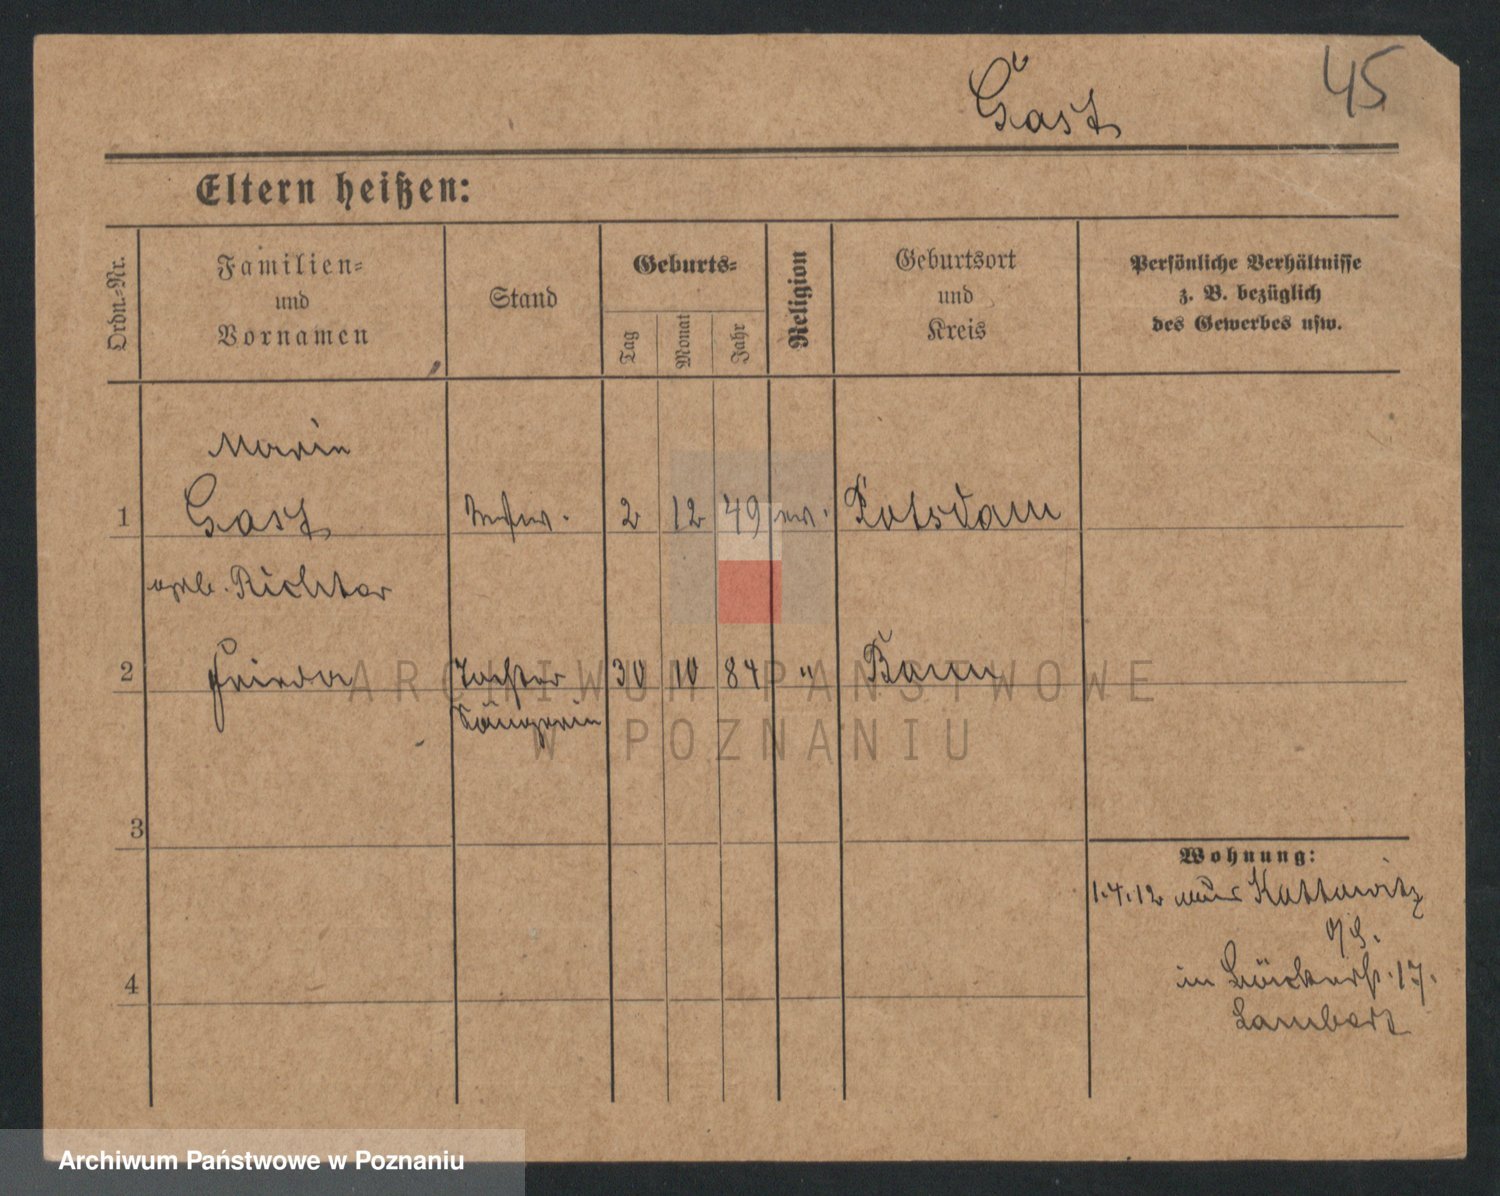 45
Gast
Eltern heißen:
Ordn.-Nr.
Familien-
und
Vornamen
Stand
Geburts-
Tag
Monat
Jahr
Religion
Geburtsort
und
Kreis
Persönliche Verhältnisse
z. B. bezüglich
des Gewerbes usw.
Marie
1 Gast 2 12 49 ev. Potsdam
geb. Richter
2 Frieda Tochter 30 10 84 " Bonn
Sängerin
3
4
Wohnung:
1.4.12 aus Kattowitz
O/S.
in 17.
Lambert
ARCHIWUM PAŃSTWOWE
W POZNANIU
Archiwum Państwowe w Poznaniu